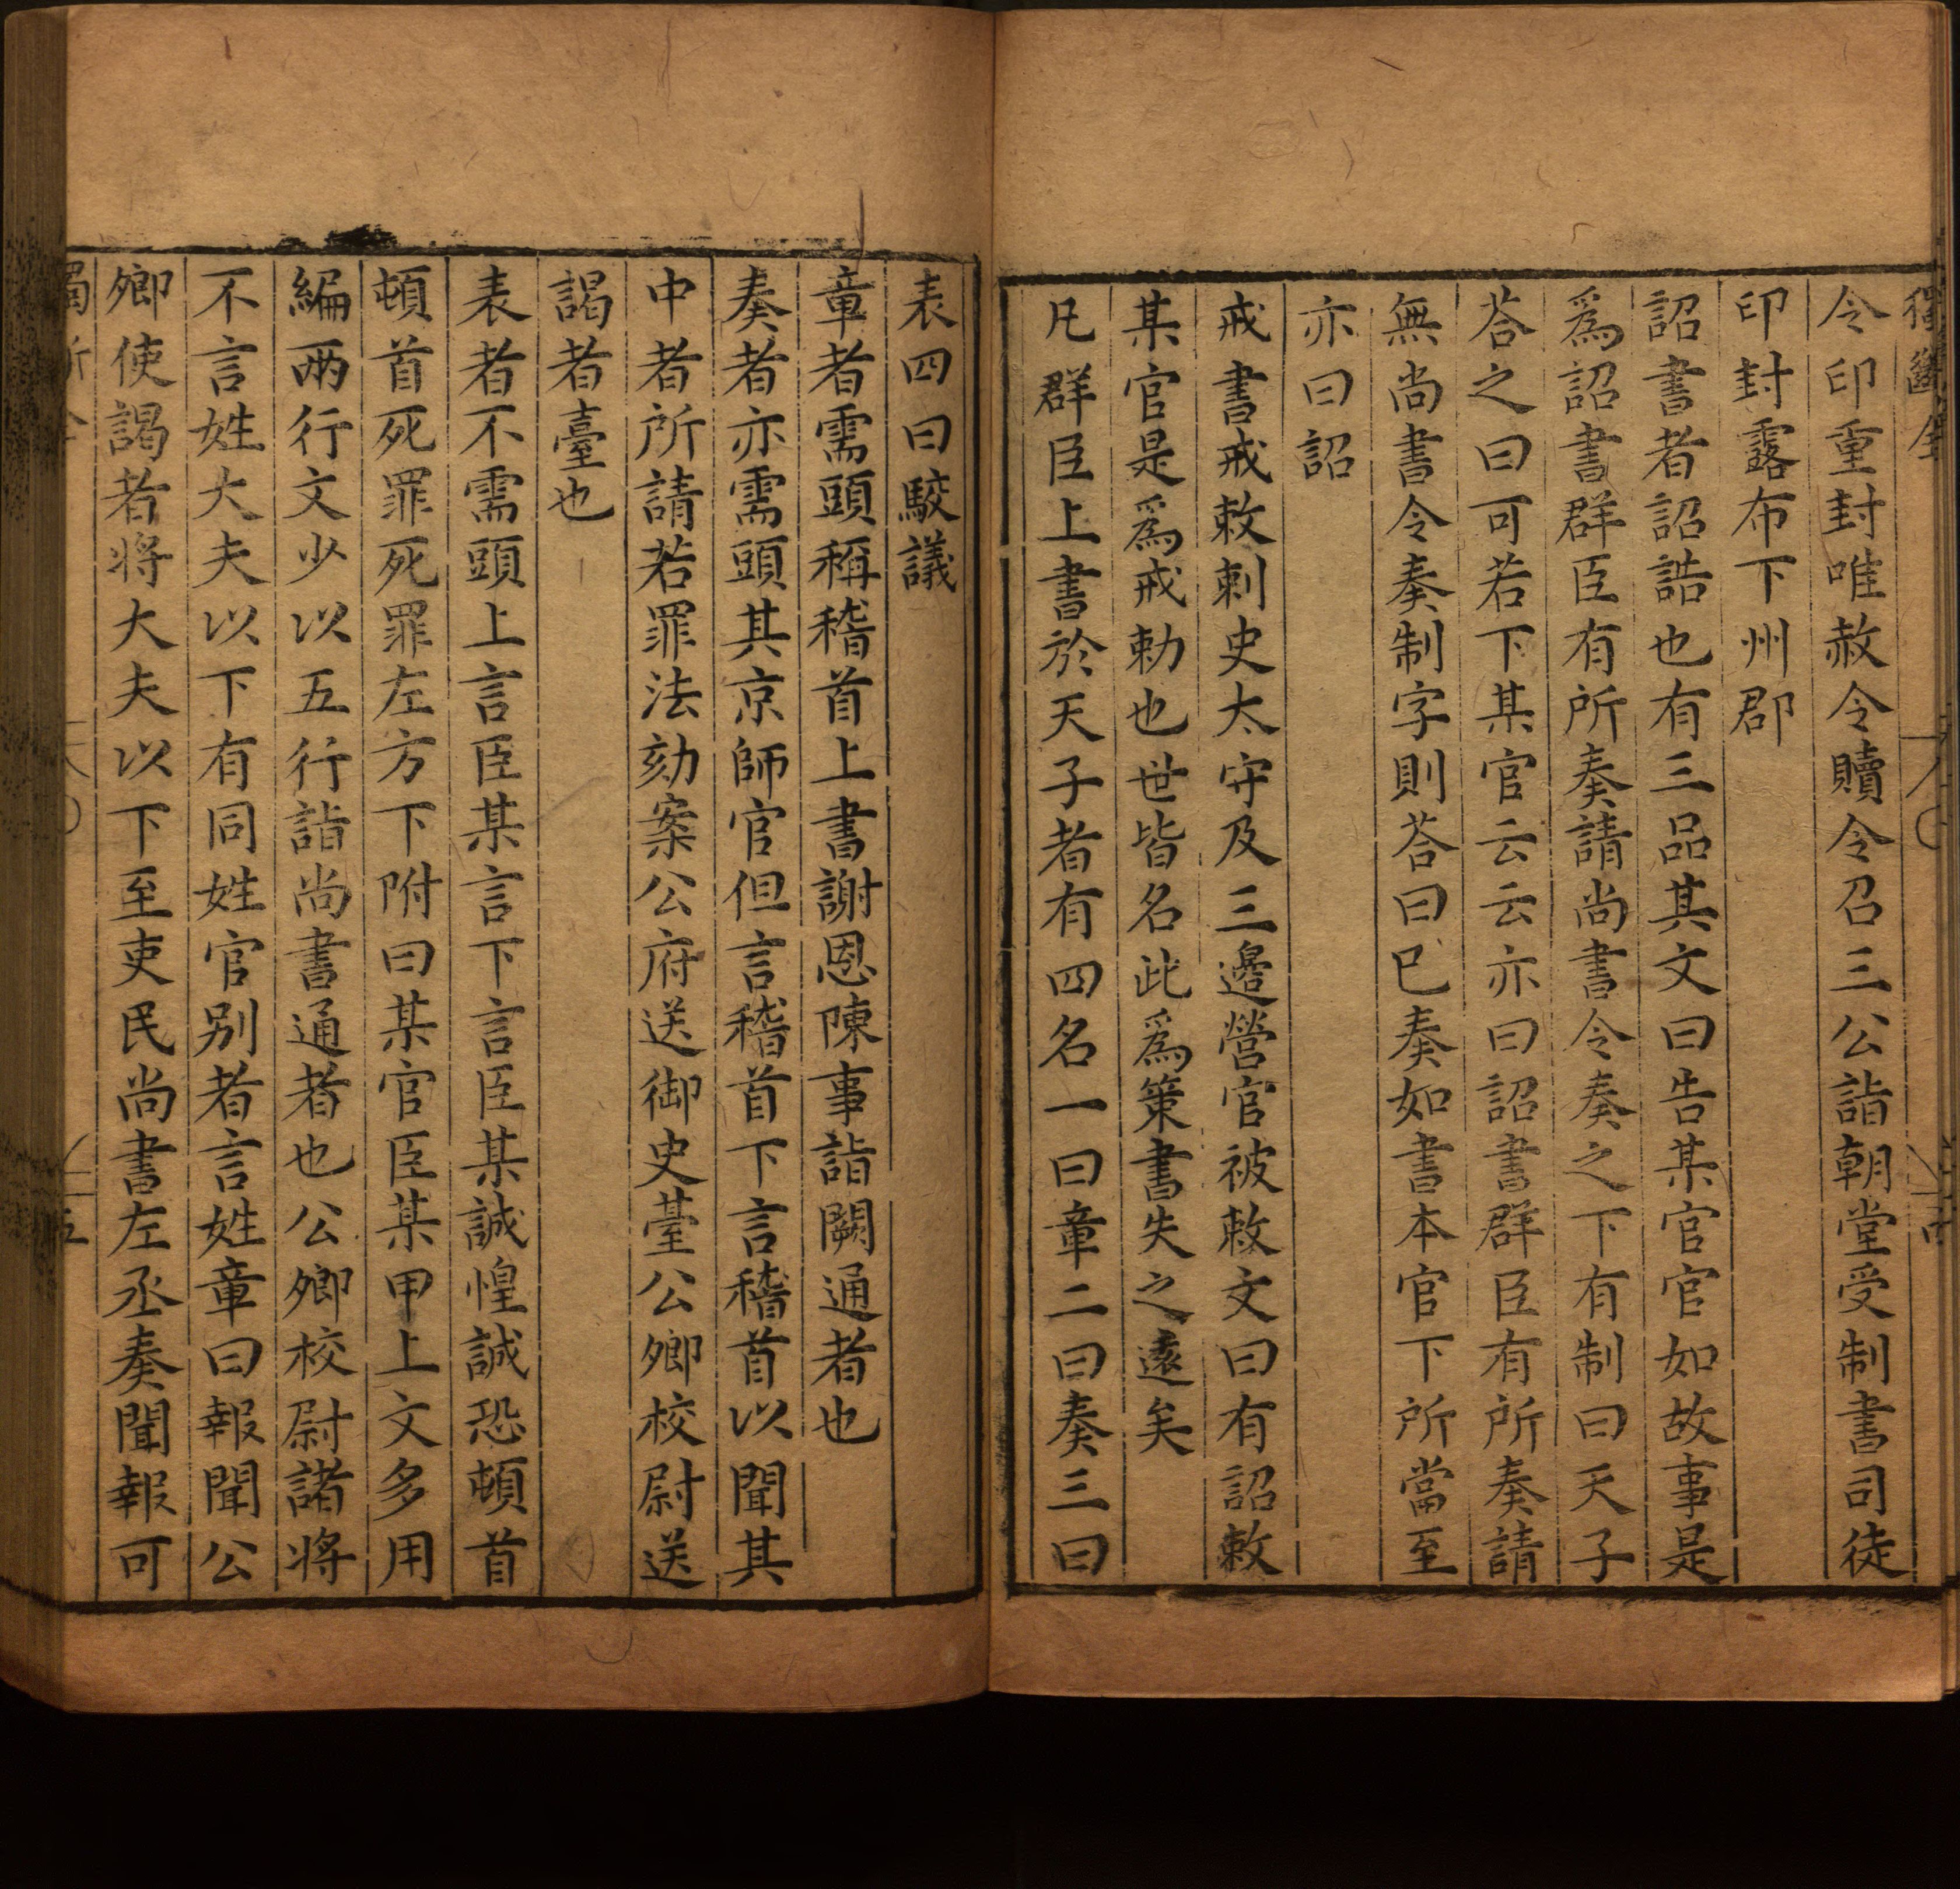 令印重封唯赦令贖令召三公詣朝堂受制書司徒
印封露布下州郡
詔書者詔誥也有三品其文曰告某官官如故事是
爲詔書群臣有所奏請尚書令奏之下有制曰天子
荅之曰可若下某官云云亦曰詔書群臣有所奏請
無尚書令奏制字則荅曰已奏如書本官下所當至
亦曰詔
戒書戒敕刺史太守及三邊營官被敕文曰有詔敕
某官是爲戒勅也世皆名此爲策書失之遠矣
凡群臣上書於天子者有四名一曰章二曰奏三曰
表四曰駮議
章者需頭稱稽首上書謝恩陳事詣闕通者也
奏者亦需頭其京師官但言稽首下言稽首以聞其
中者所請若罪法劾案公府送御史臺公卿校尉送
謁者臺也
表者不需頭上言臣某言下言臣某誠惶誠恐頓首
頓首死罪死罪左方下附曰某官臣某甲上文多用
編兩行文少以五行詣尚書通者也公卿校尉諸將
不言姓大夫以下有同姓官別者言姓章曰報聞公
卿使謁者將大夫以下至吏民尚書左丞奏聞報可